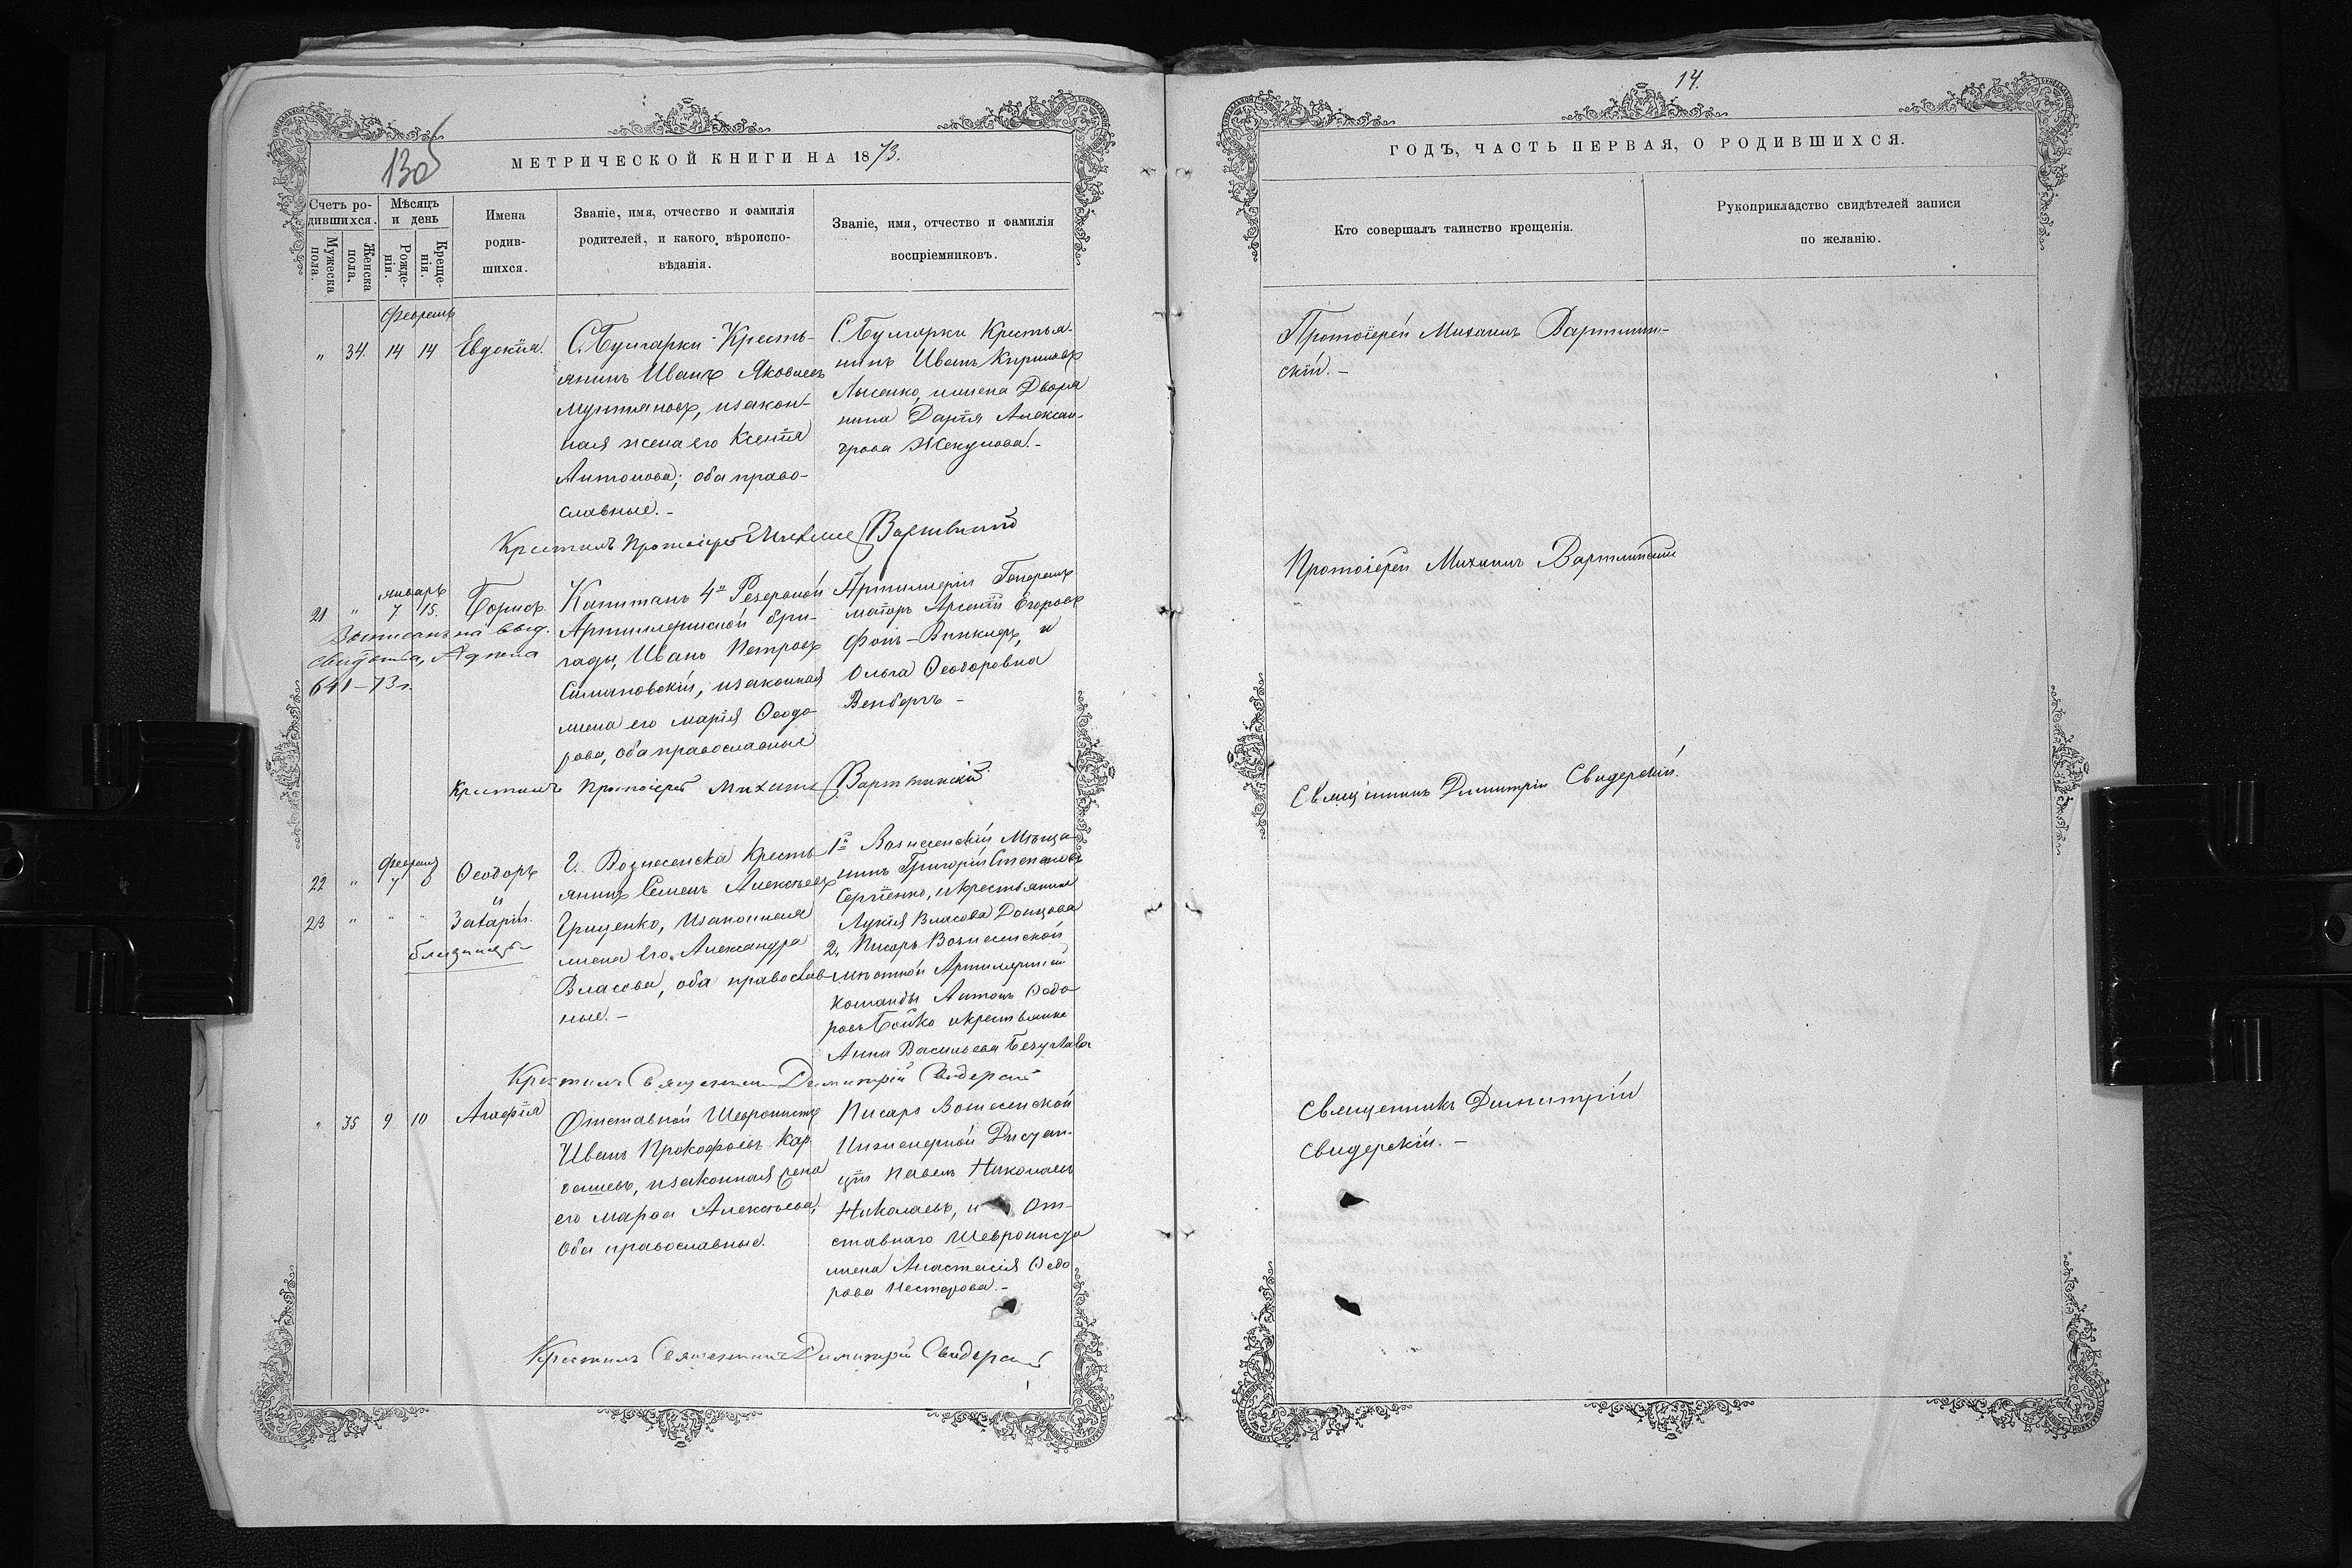 130
МЕТРИЧЕСКОЙ КНИГИ НА 1873.
Счетъ ро-
дившихся.
Мужеска
пола.
Женска
пола.
Мѣсяцъ
и день
Рожде-
нія.
Креще-
нія.
Имена
родив-
шихся.
Званіе, имя, отчество и фамилія
родителей, и какого вѣроиспо-
вѣданія.
Званіе, имя, отчество и фамилія
воспріемниковъ.
Февраль
" 34. 14 14 Евдокія.
С. Булгарки Кресть-
янинъ Иванъ Яковлевъ
изакон-
ная жена его Ксенія
Антонова; оба право-
славные.-
С. Булгарки Крестья-
нинъ Иванъ Кириловъ
Лысенко, и жена Дворя
нина Дарія Алексан-
дрова Жекулова.-
Крестилъ Протоіерей Михаилъ
Январь
21 " 7 15. Борисъ
свидѣт-ва,
641-73 г.
Капитанъ 4й Резервной
Артиллерійской бри-
гады, Иванъ Петровъ
Симановскій, изаконная
жена его Марія Ѳеодо-
рова, оба православные
Артиллеріи Генералъ
маіоръ Арсеній Егоровъ
Фонъ-Винклеръ, и
Ольга Ѳеодоровна
Венбергъ -
Крестилъ Протоіерей Михаилъ
Февраль
22 " 7 8 Ѳеодоръ
и
23 " " " Захарій.
близнецы
Г. Вознесенска Кресть
янинъ Семенъ Алексѣевъ
Гриценко, изаконная
жена его Александра
Власова, оба православ
ные.-
1й Вознесенскій Мѣща-
нинъ Григорій Степановъ
Сергіенко, и крестьянка
Лукія Власова Донцова
2, Писарь Вознесенской
мѣстной Артиллерійской
команды Антонъ Ѳедо
ровъ Бойко и крестьянка
Анна Васильева
Крестилъ Священникъ Димитрій Свидерскій
" 35 9 10 Агафія
Отставной Шевронистъ
Иванъ Прокофьевъ Кар
ташевъ, изаконная жена
его Марѳа Алексѣева,
Оба православные.
Писарь Вознесенской
Инженерной Дистан-
ціи Павелъ Николаевъ
Николаевъ, и От-
ставнаго Шеврониста
жена Анастасія Ѳедо
рова Нестерова.-
Крестилъ Священникъ Димитрій Свидерскій
14.
ГОДЪ, ЧАСТЬ ПЕРВАЯ, О РОДИВШИХСЯ.
Кто совершалъ таинство крещенія.
Рукоприкладство свидѣтелей записи
по желанію.
Протоіерей Михаилъ Вартмин-
скій.-
Протоіерей Михаилъ Вартминскій
Священникъ Димитрій Свидерскій.
Священникъ Димитрій
Свидерскій.-